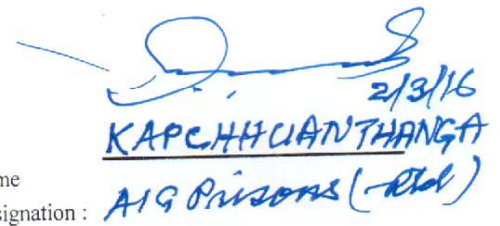 2/3/16
KAPCHHUANTHANGA
me
signation : AIG Prisons (Rtd)